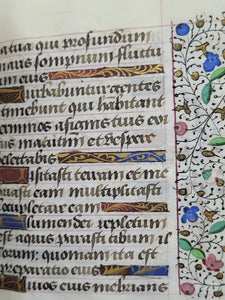 atua qui profundum
aris sompnium fluctuu
eius
urbabuntur gentes
timebunt qui habitant
erminos asignis tuis exi
us matutini et vespere
electabis
isitasti terram et ine
riasti eam multiplicasti
ocupletare eam
lumen dei repletum
est aquis parasti cibum il
orum, quoniam ita est
preparatio eius
ivos eius inebrians